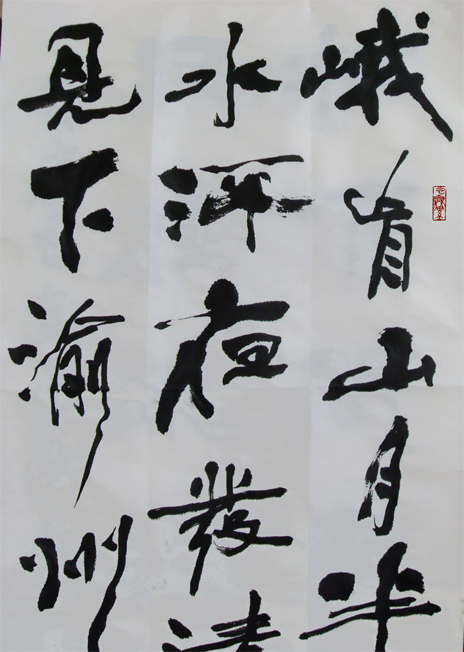 峨眉山月半
水流夜發清
見下渝州